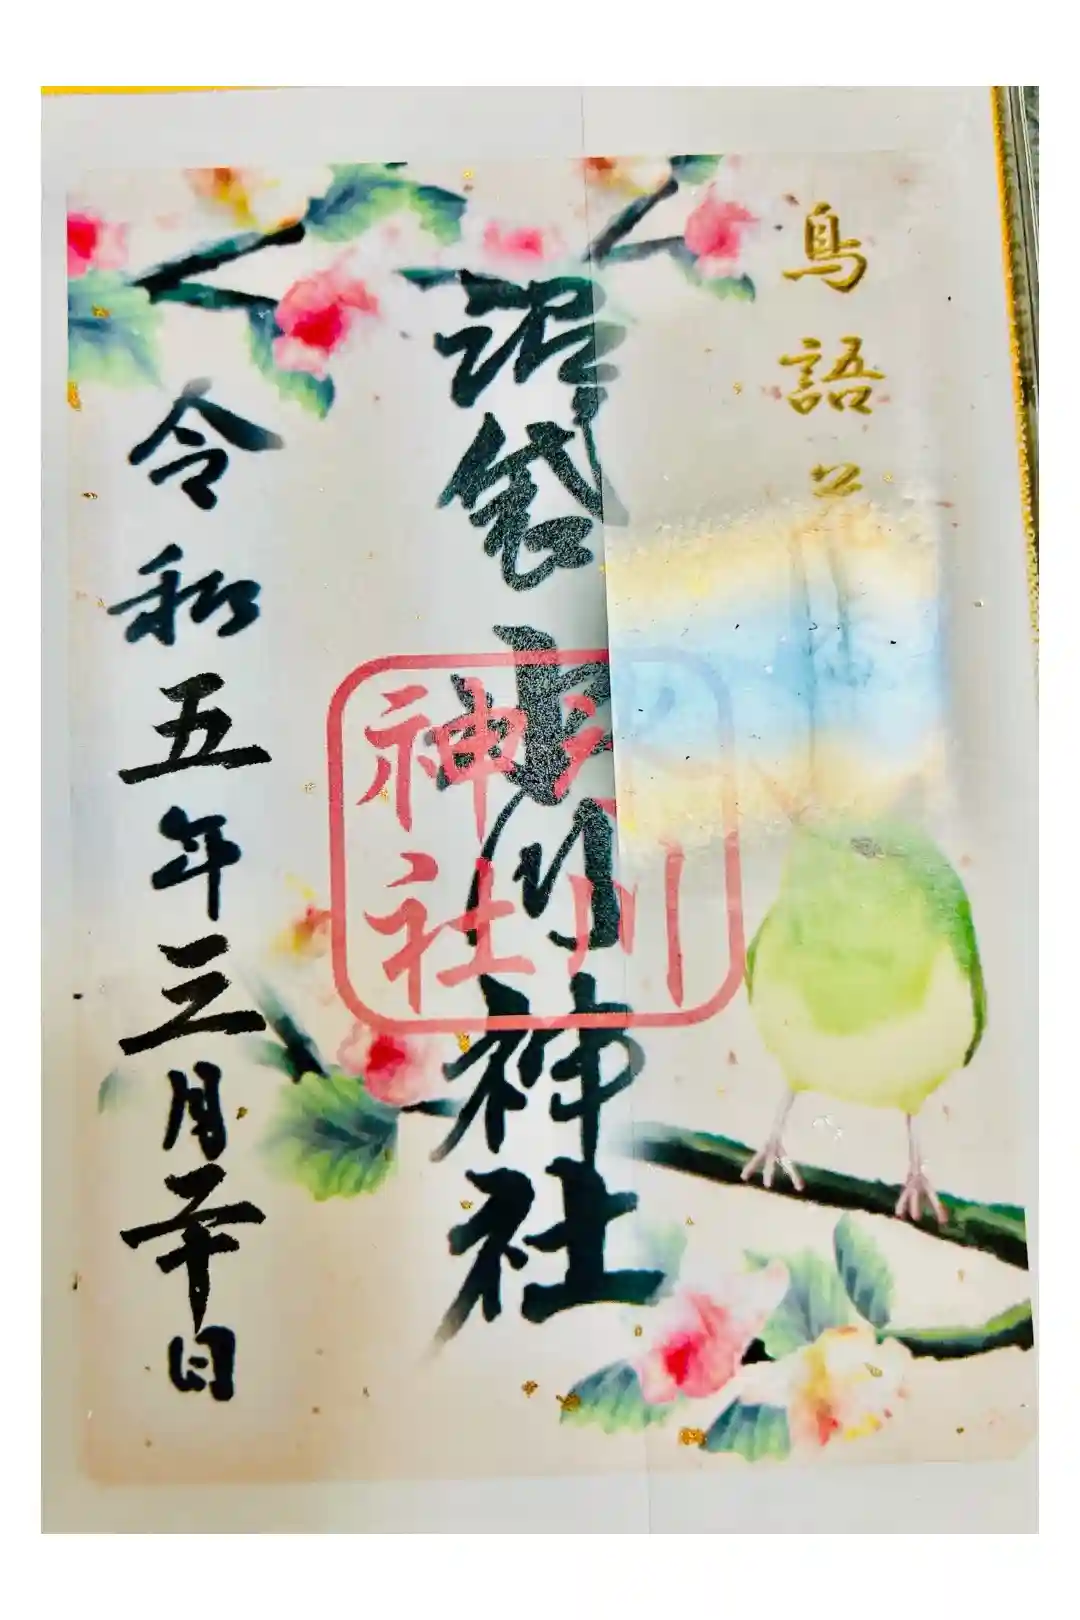 鳥語
沼袋氷川神社
氷川
神社
令和五年三月二十日